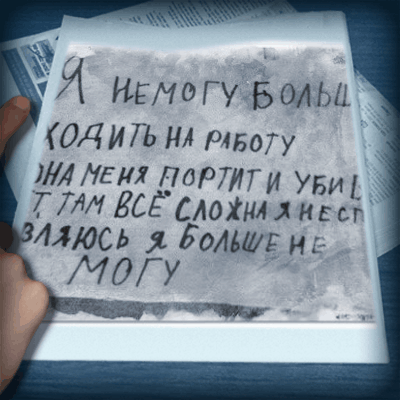 Я НЕМОГУ БОЛЬШ
ХОДИТЬ НА РАБОТУ
ОНА МЕНЯ ПОРТИТ И УБИВ
Т, ТАМ ВСЁ СЛОЖНА Я НЕ СП
ВЛЯЮСЬ Я БОЛЬШЕ НЕ
МОГУ